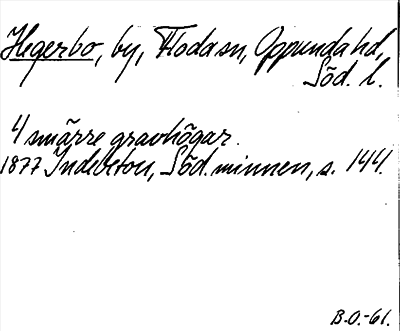 Hegerbo, by, Floda sn, Oppunda hd,
Söd. l.
4 smärre gravhögar.
1877 Indebetou, Söd. minnen, s. 144.
B.O.-61.